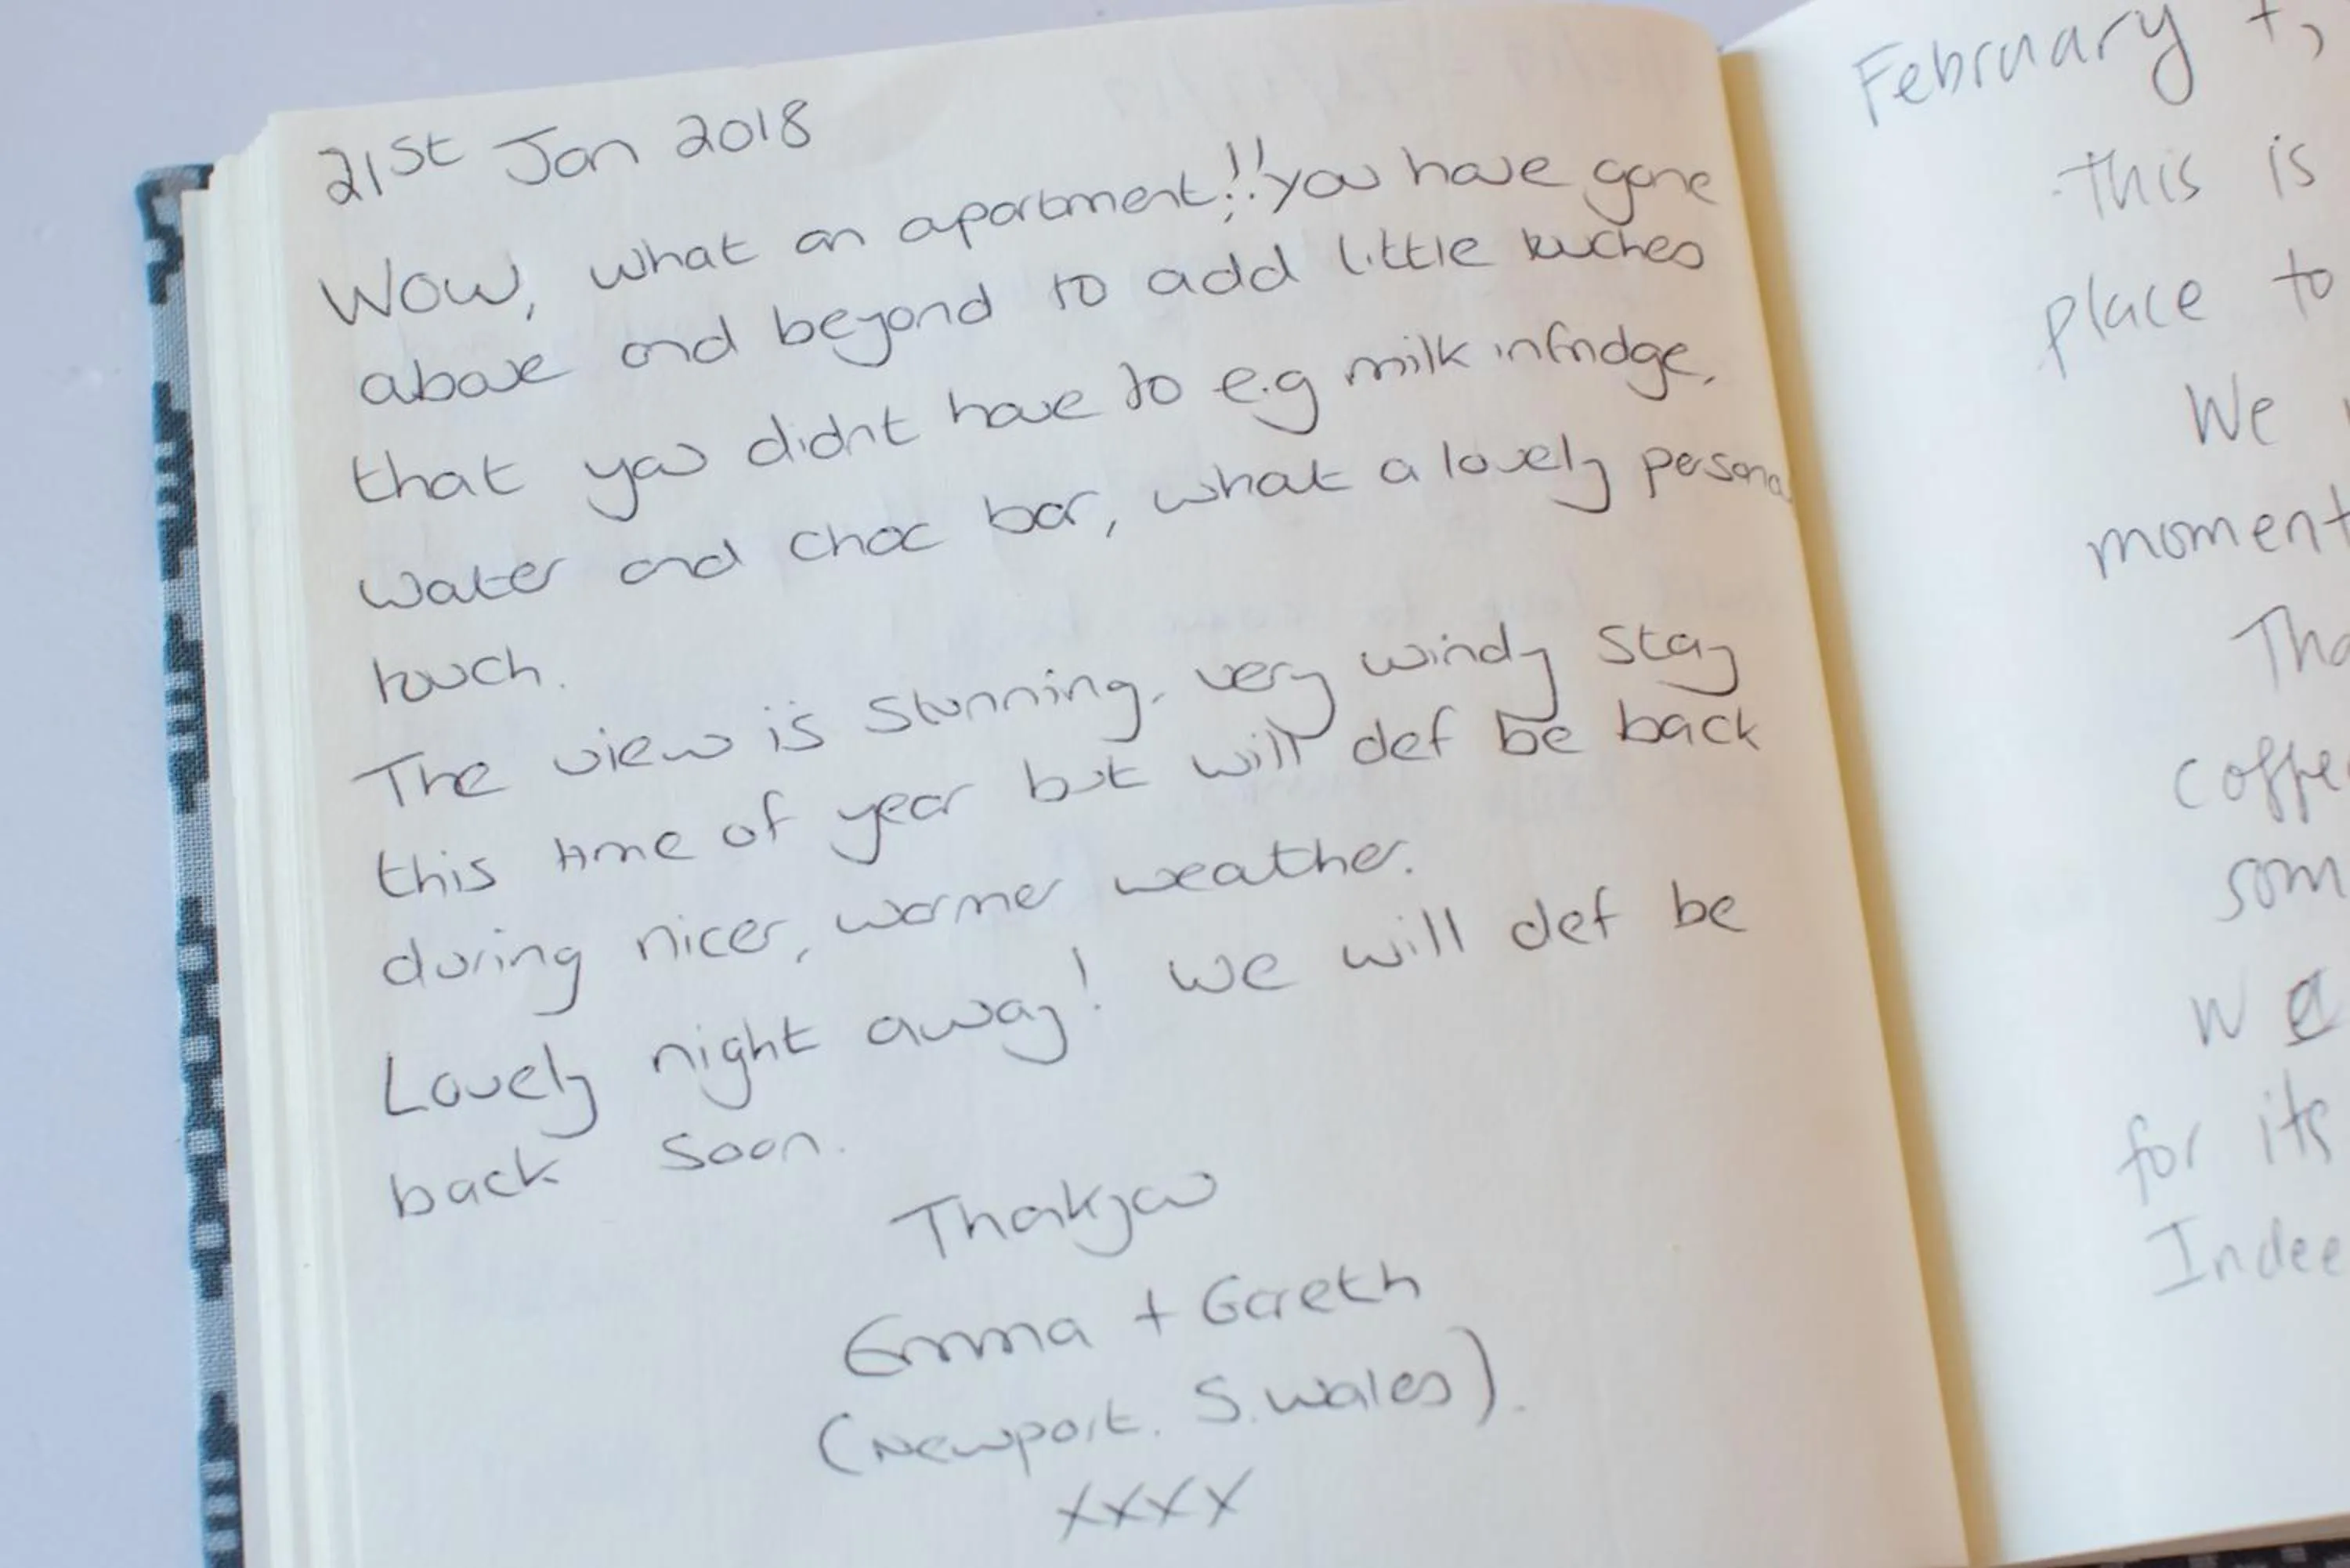 21st Jan 2018
Wow, what an apartment!! You have gone
above and beyond to add little touches
that you didnt have to e.g milk in fridge,
water and choc bar, what a lovely personal
touch.
The view is stunning, very windy stay
this time of year but will def be back
during nicer, warmer weather.
Lovely night away! We will def be
back soon.
Thankyou
Emma + Gareth
(Newport. S. Wales).
xxxx
February
This is
place to
We
moment
coffe
som
we
for its
Indee